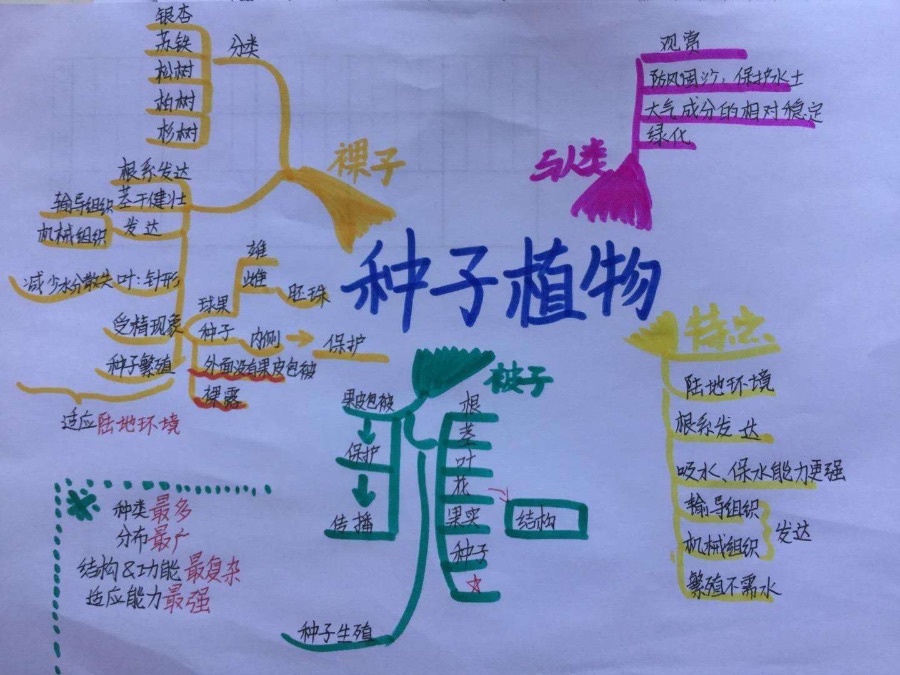 种子植物
裸子
分类
银杏
苏铁
松树
柏树
杉树
根系发达
茎干健壮
输导组织
机械组织
发达
减少水分散失 叶:针形
受精现象
种子繁殖
适应陆地环境
球果
雄
雌
胚珠
种子 内侧 → 保护
外面没有果皮包被
裸露
与人类
观赏
防风固沙,保护水土
大气成分的相对稳定
绿化
特点
陆地环境
根系发达
吸水、保水能力更强
输导组织
机械组织
发达
繁殖不需水
被子
果皮包被
保护
传播
根
茎
叶
花
果实
种子
结构
种子生殖
种类最多
分布最广
结构&功能最复杂
适应能力最强